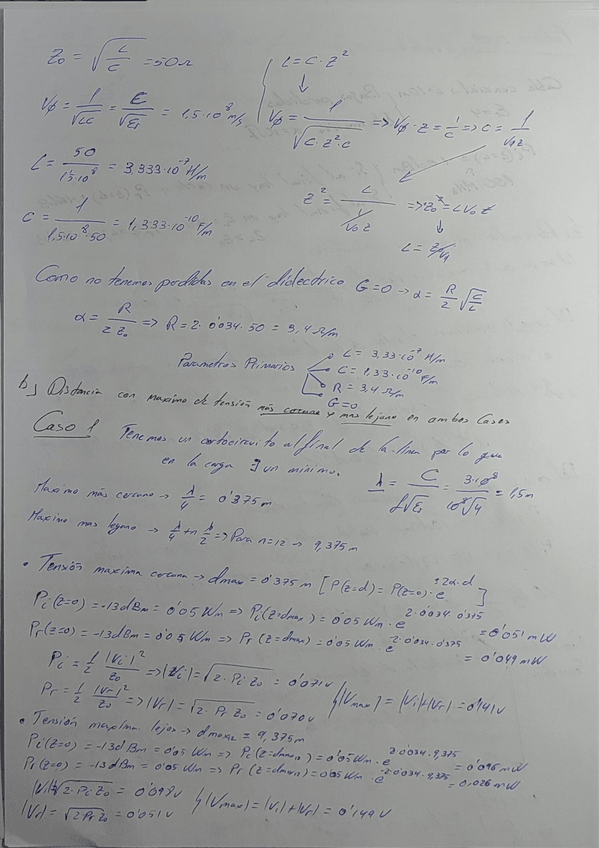 Z₀ = √(L/C) = 50Ω
L = C·Z²
Vφ = 1/√(LC) = C/√εr = 1,5·10⁸ m/s
Vφ = 1/√(C·Z²·C) => Vφ·Z = 1/C => C = 1/(V₀Z)
L = 50/(1'5·10⁸) = 3,333·10⁻⁷ H/m
Z² = L/(1/(V₀Z)) => Z₀² = L V₀ Z
C = 1/(1,5·10⁸·50) = 1,333·10⁻¹⁰ F/m
L = Z/Vφ
Como no tenemos perdidas en el dielectrico G=0 → α = R/2 √(C/L)
α = R/(2Z₀) => R = 2·0'034·50 = 3,4 Ω/m
Parametros Primarios
L = 3,33·10⁻⁷ H/m
C = 1,33·10⁻¹⁰ F/m
R = 3,4 Ω/m
G = 0
b) Distancia con maximo de tensión más cercano y mas lejano en ambos Casos
Caso 1 Tenemos un cortocircuito al final de la linea por lo que
en la carga ∃ un minimo.
λ = C/(f√εr) = 3·10⁸/(10⁸√4) = 1,5m
Maximo más cercano → λ/4 = 0'375m
Maximo mas lejano → λ/4 + n λ/2 => Para n=12 → 9,375m
• Tensión maxima cercana → dmax = 0'375m [P(z=d) = P(z=0)·e^(±2α·d)]
Pi(z=0) = -13dBm = 0'05 Wm => Pi(z=dmax) = 0'05 Wm·e^(2·0'034·0'375) = 0'051 mW
Pr(z=0) = -13dBm = 0'05 Wm => Pr(z=dmax) = 0'05 Wm·e^(-2·0'034·0'375) = 0'049 mW
Pi = 1/2 |Vi|²/Z₀ => |Vi| = √(2·Pi·Z₀) = 0'071v
Pr = 1/2 |Vr|²/Z₀ => |Vr| = √(2·Pr·Z₀) = 0'070v
|Vmax| = |Vi|+|Vr| = 0'141v
• Tension maxima lejos → dmax₂ = 9,375m
Pi(z=0) = -13dBm = 0'05 Wm => Pi(z=dmax₂) = 0'05Wm·e^(2·0'034·9,375) = 0'096 mW
Pr(z=0) = -13dBm = 0'05 Wm => Pr(z=dmax₂) = 0'05Wm·e^(-2·0'034·9,375) = 0,026 mW
|Vi| = √(2·Pi·Z₀) = 0'098v
|Vr| = √(2·Pr·Z₀) = 0'051v
|Vmax| = |Vi|+|Vr| = 0'149v